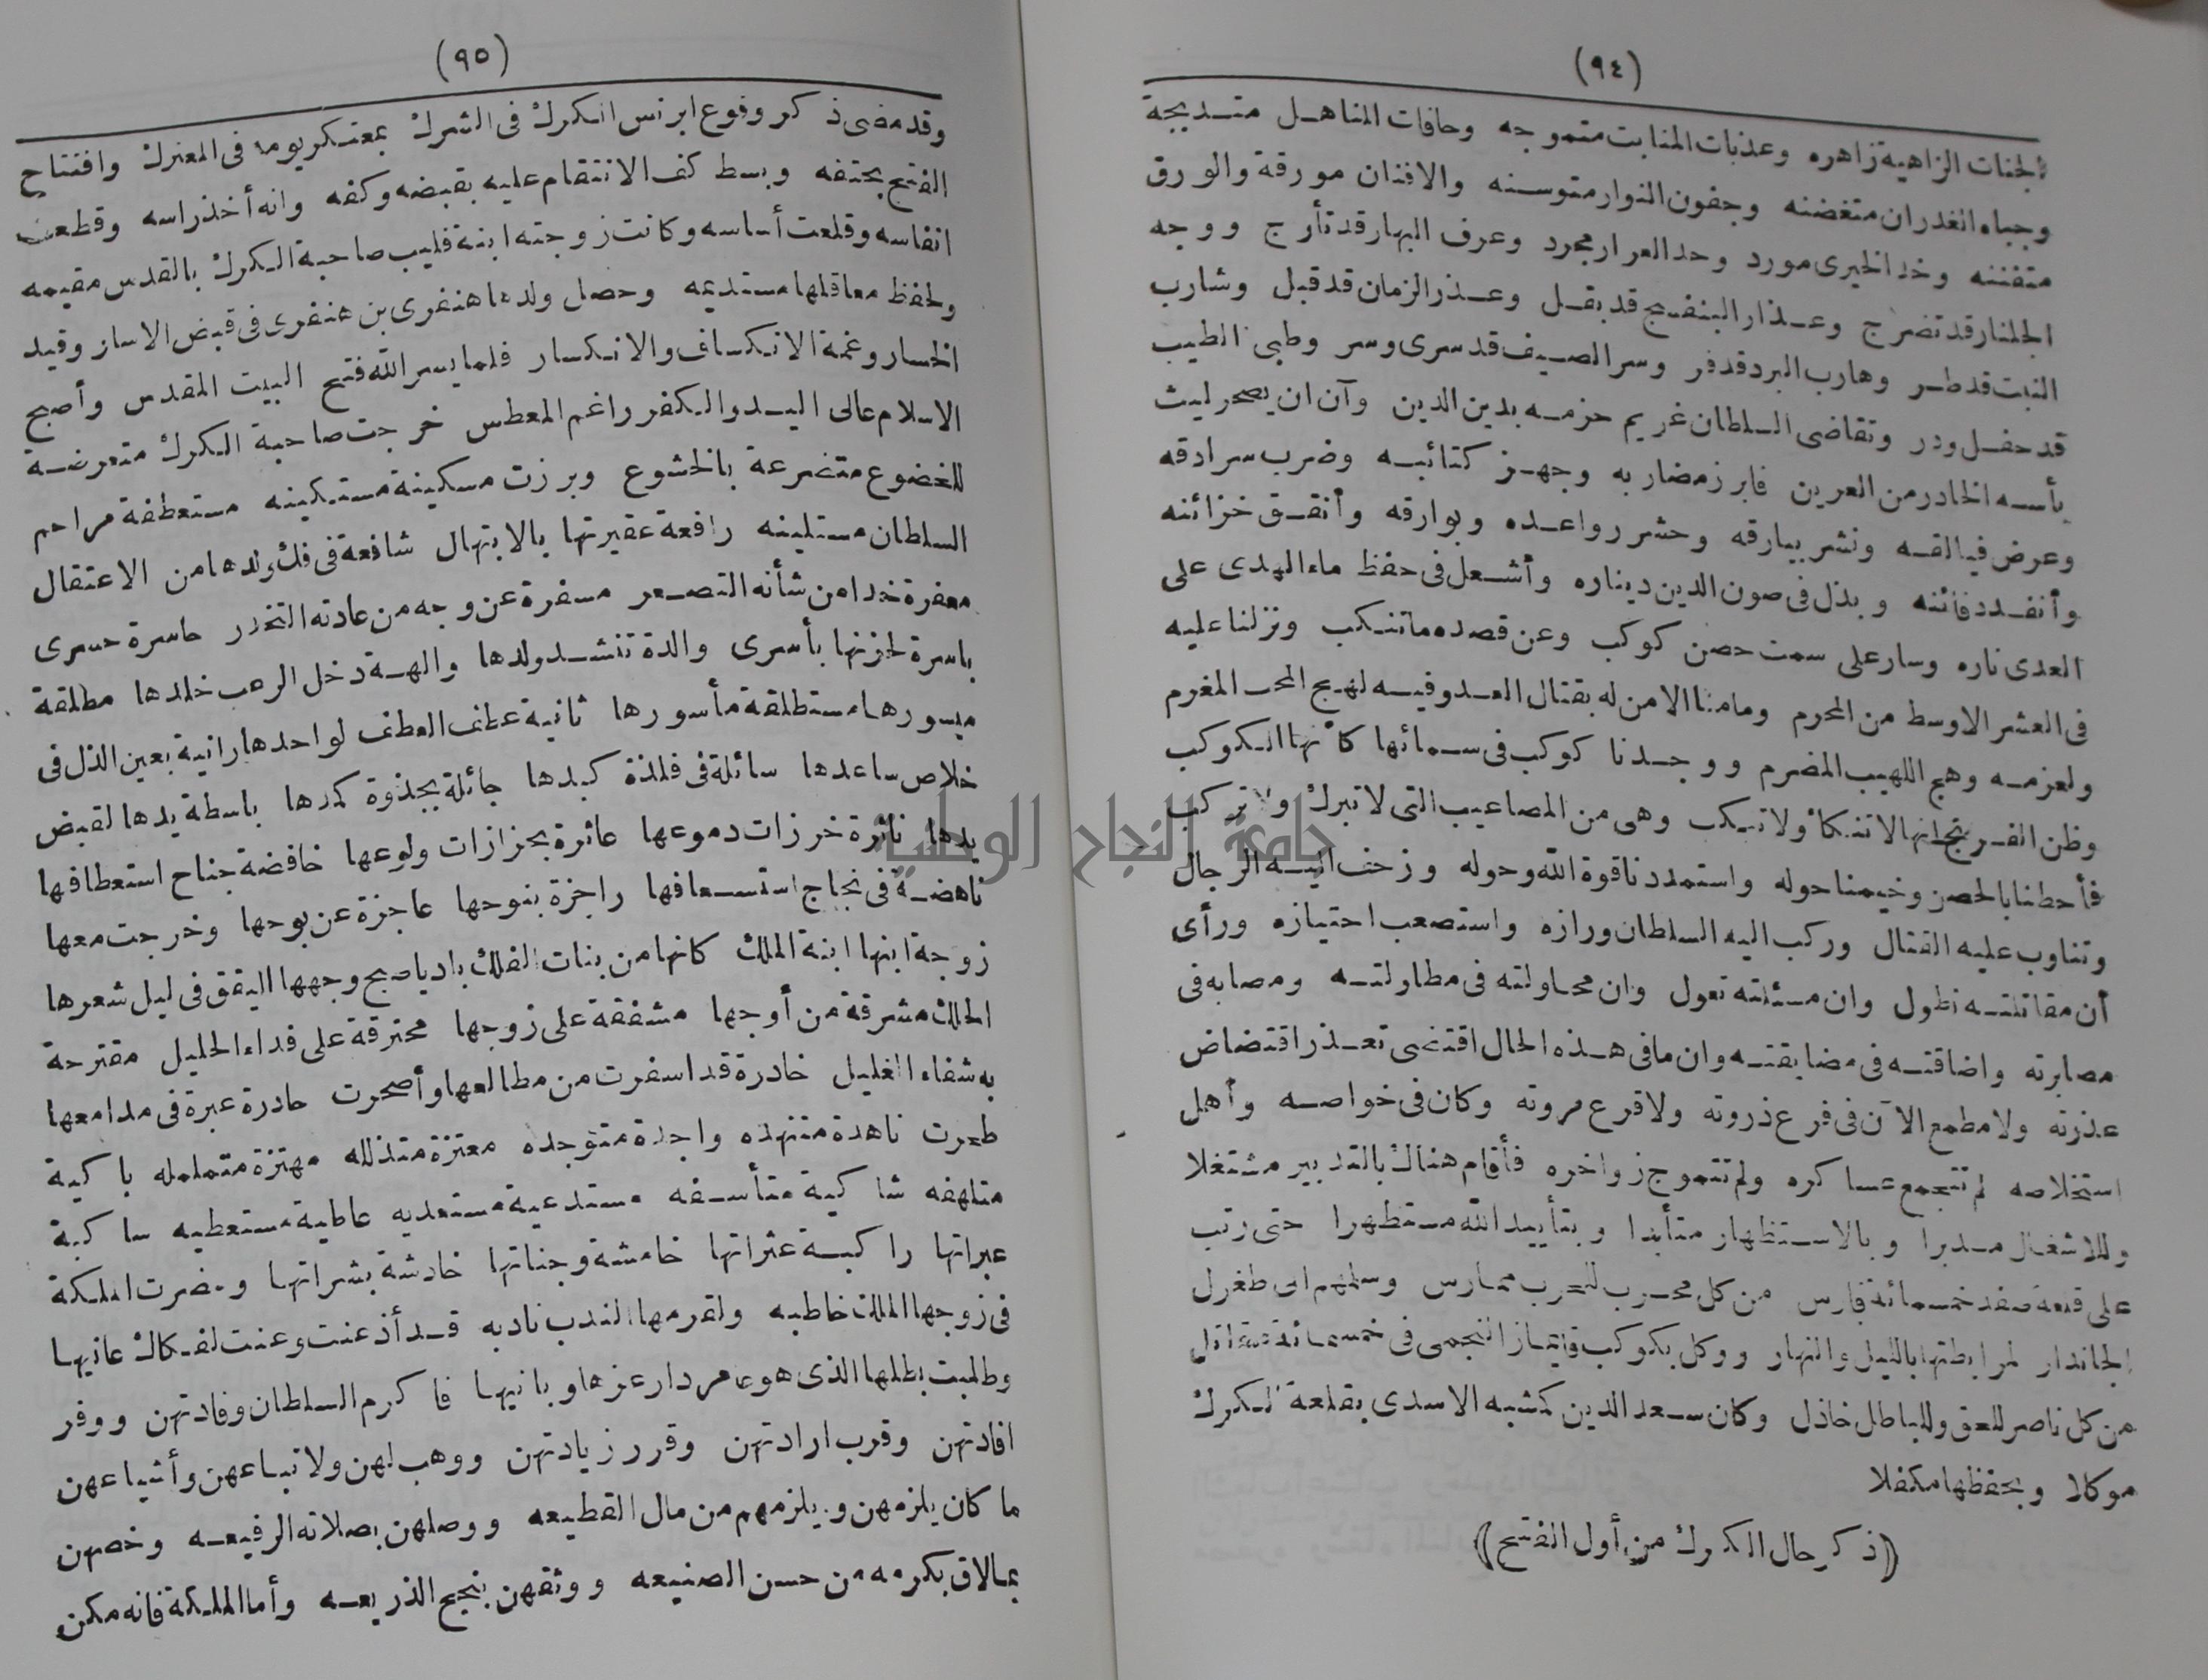 (٩٤)
الجنات الزاهية زاهره وعذبات المنابت متموجه وحافات المناهل متديجة
وجباه الغدران متغضنه وجفون النوار متوسنه والافنان مورقة والورق
متفننه وخد الخيرى مورد وحد العرار مجرد وعرف البهار قد تأرج ووجه
الجلنار قد تضرج وعذار البنفسج قد بقل وعذر الزمان قد قبل وشارب
النبت قد طر وهارب البرد قد فر وسر الصيف قد سرى وسر وطبى الطيب
قد حفل ودر وتقاضى السلطان غريم حزمه بدين الدين وآن ان يصحر ليث
بأسه الخادر من العرين فابرز مضاربه وجهز كتائبه وضرب سرادقه
وعرض فيالقه ونشر بيارقه وحشر رواعده وبوارقه وأنفق خزائنه
وأنفد دفائنه وبذل فى صون الدين ديناره وأشعل فى حفظ ماء الهدى على
العدى ناره وسار على سمت حصن كوكب وعن قصده ماتنكب ونزلنا عليه
فى العشر الاوسط من المحرم ومامنا الا من له بقتال العدو فيه لهج المحب المغرم
ولعزمه وهج اللهيب المضرم ووجدنا كوكب فى سمائها كأنها الكوكب
وظن الفرنج انها لاتنكأ ولا تنكب وهى من المصاعيب التى لا تبرك ولا تركب
فأحطنا بالحصن وخيمنا حوله واستمددنا قوة الله وحوله وزحف اليه الرجال
وتناوب عليه القتال وركب اليه السلطان ورازه واستصعب احتيازه ورأى
أن مقاتلته تطول وان مسئلته تعول وان محاولته فى مطاولته ومصابه فى
مصابرته واضاقته فى مضايقته وان مافى هذه الحال اقتضى تعذر اقتضاض
عذرته ولا مطمع الآن فى فرع ذروته ولا قرع مروته وكان فى خواصه وأهل
استخلاصه لم تتجمع عساكره ولم تتموج زواخره فأقام هناك بالتدبير مشتغلا
وللاشغال مدبرا وبالاستظهار متأيدا وبتأييد الله مستظهرا حتى رتب
على قلعة صفد خمسمائة فارس من كل محرب للحرب ممارس وسلمهم الى طغرل
الجاندار لمرابطتها بالليل والنهار ووكل بكوكب قايماز النجمى فى خمسمائة مقاتل
من كل ناصر للحق وللباطل خاذل وكان سعد الدين كمشبه الاسدى بقلعة الكرك
موكلا وبحفظها مكفلا
(ذكر حال الكرك من أول الفتح)
(٩٥)
وقد مضى ذكر وقوع ابرنس الكرك فى الشرك بمعتكر يومه فى المعترك وافتتاح
الفتح بحتفه وبسط كف الانتقام عليه بقبضه وكفه وانه أخذ راسه وقطعت
انفاسه وقلعت أساسه وكانت زوجته ابنة فليب صاحبة الكرك بالقدس مقيمه
ولحفظ معاقلها مستديمه وحصل ولدها هنفرى بن هنفرى فى قبض الاسار وقيد
الخسار وغمة الانكساف والانكسار فلما يسر الله فتح البيت المقدس وأصبح
الاسلام عالى اليد والكفر راغم المعطس خرجت صاحبة الكرك متعرضة
للخضوع متضرعة بالخشوع وبرزت مسكينة مستكينه مستعطفة مراحم
السلطان مستلينه رافعة عقيرتها بالابتهال شافعة فى فك ولدها من الاعتقال
معفرة خدا من شأنه التصعر مسفرة عن وجه من عادته التخدر حاسرة حسرى
باسرة لحزنها بأسرى والدة تنشد ولدها والهة دخل الرعب خلدها مطلقة
ميسورها مستطلقة مأسورها ثانية عطف العطف لواحدها رانية بعين الذل فى
خلاص ساعدها سائلة فى فلذة كبدها جائلة بجذوة كمدها باسطة يدها لقبض
يدها ناثرة خرزات دموعها عاثرة بحزازات ولوعها خافضة جناح استعطافها
ناهضة فى نجاج استسعافها راجزة بنوحها عاجزة عن بوحها وخرجت معها
زوجة ابنها ابنة الملك كانها من بنات الفلك باديا صبح وجهها اليقق فى ليل شعرها
الحلك مشرقة من أوجها مشفقة على زوجها محترقة على فداء الحليل مقترحة
به شفاء الغليل خادرة قد اسفرت من مطالعها وأصحرت حادرة عبرة فى مدامعها
طحرت ناهدة متنهده واجدة متوجده معتزة متذلله مهتزة متململه باكية
متلهفه شاكية متأسفه مستدعية مستعديه عاطية مستعطيه ساكبة
عبراتها راكبة عثراتها خامشة وجناتها خادشة بشراتها وحضرت الملكة
فى زوجها الملك خاطبه ولقرمها الندب نادبه قد أذعنت وعنت لفكاك عانيها
وطلبت بطلها الذى هو عامر دار عزها وبانيها فاكرم السلطان وفادتهن ووفر
افادتهن وقرب ارادتهن وقرر زيادتهن ووهب لهن ولاتباعهن وأشياعهن
ما كان يلزمهن ويلزمهم من مال القطيعه ووصلهن بصلاته الرفيعه وخصهن
بمالاق بكرمه من حسن الصنيعه ووثقهن بنجح الذريعه وأما الملكة فانه مكن
جامعة النجاح الوطنية